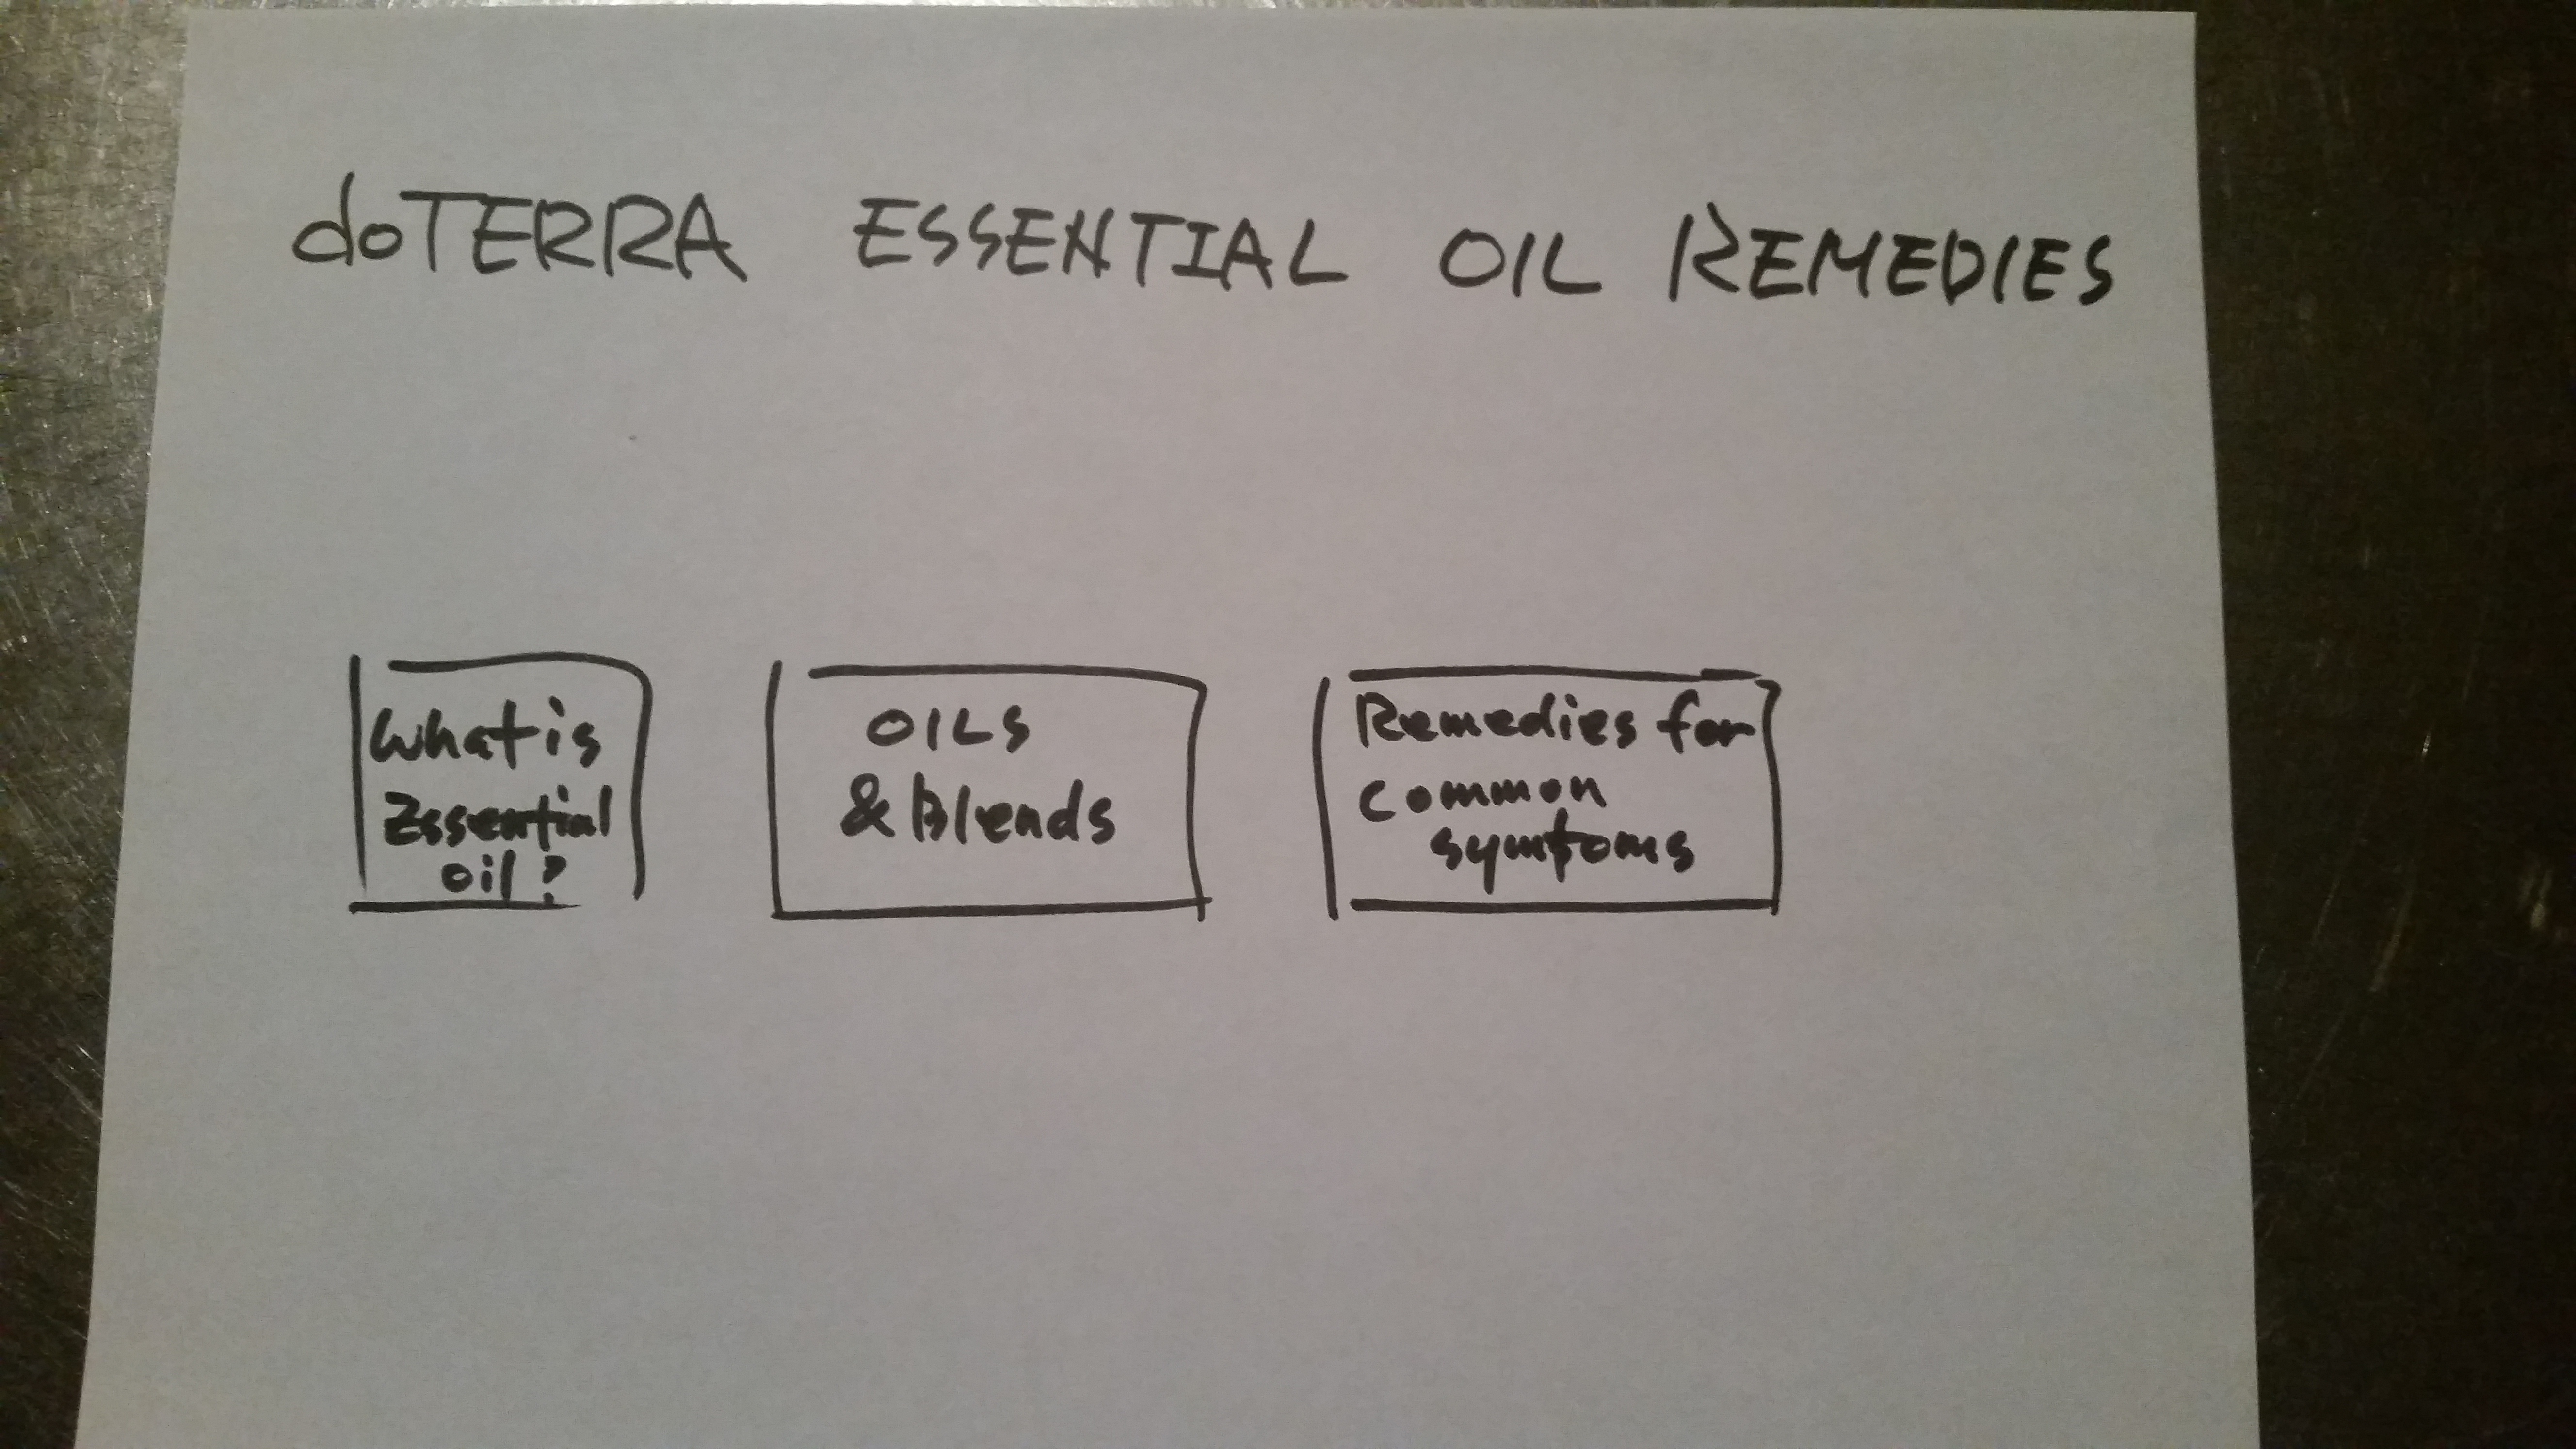 doTERRA ESSENTIAL OIL REMEDIES
What is
Essential
oil?
OILS
& Blends
Remedies for
common
symtoms